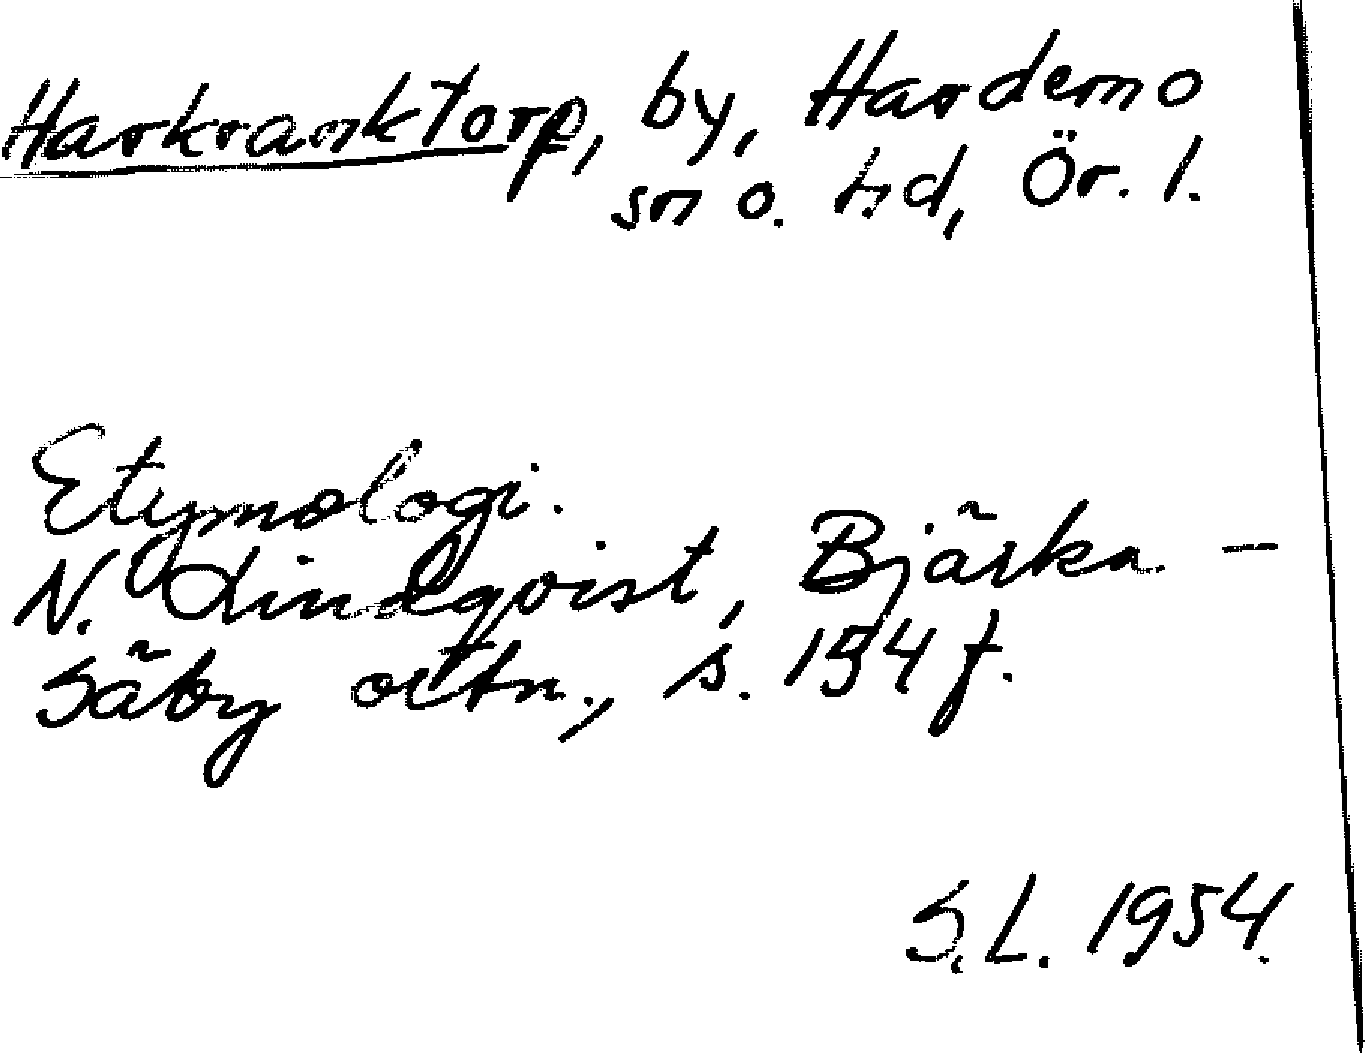 Harkranktorp, by, Hardemo
sn o. hd, Ör. l.
Etymologi.
N. Lindqvist, Bjärka-
Säby ortn., s. 154 f.
S.L. 1954.